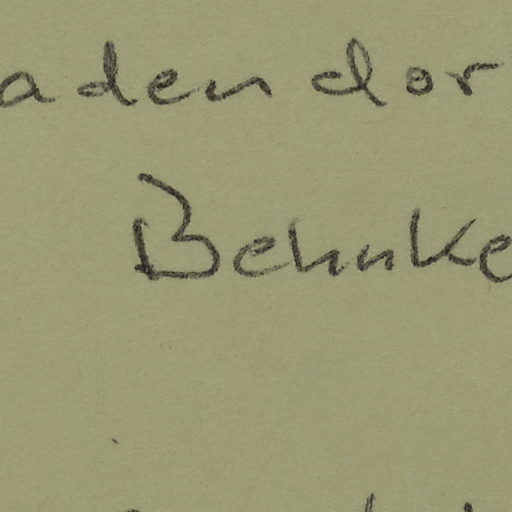 adendor
Behnke